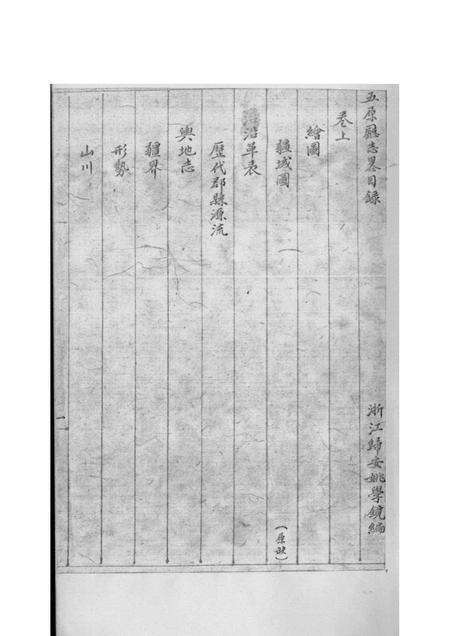 五原廳志畧目錄
浙江歸安姚學鏡編
卷上
繪圖
疆域圖
(原缺)
沿革表
歷代郡縣源流
輿地志
疆界
形勢
山川